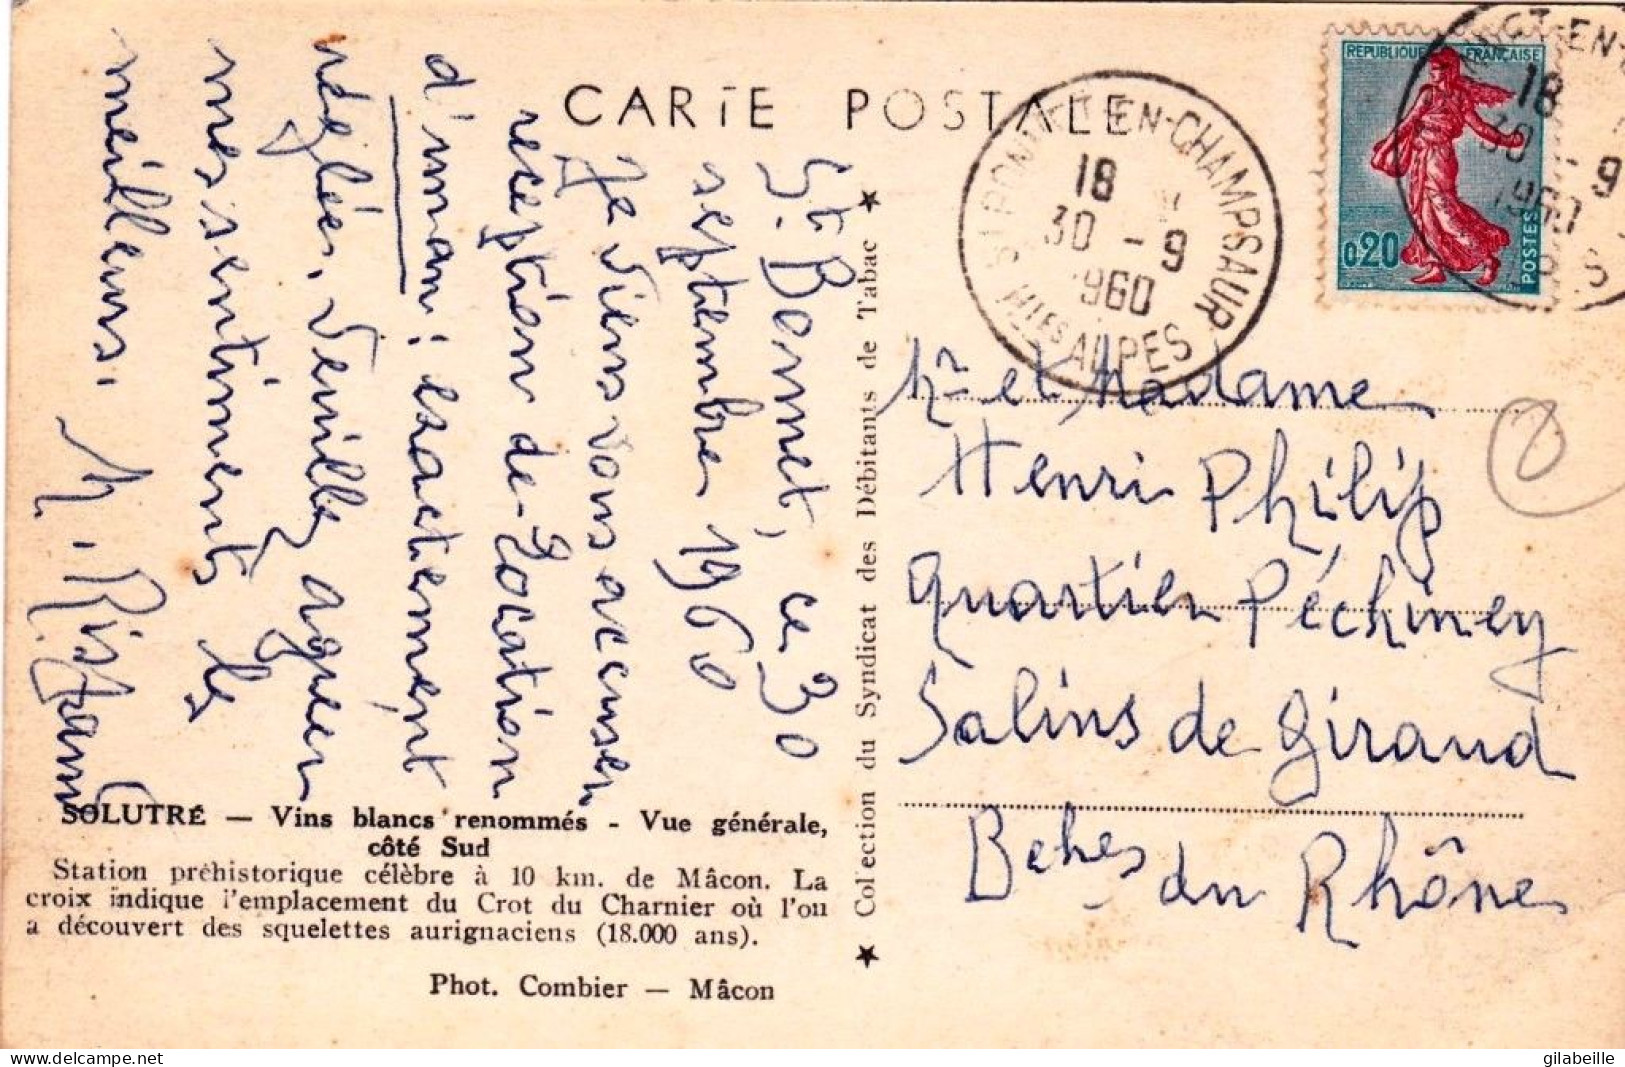 CARTE POSTALE
St. Bonnet, ce 30
septembre 1960
Je viens vous accuser
réception de
d'iman : exactement
réglés. Veuillez agréer
mes sentiments les
meilleurs.
SOLUTRÉ — Vins blancs renommés - Vue générale,
côté Sud
Station préhistorique célèbre à 10 km. de Mâcon. La
croix indique l'emplacement du Crot du Charnier où l'on
a découvert des squelettes aurignaciens (18.000 ans).
Phot. Combier — Mâcon
★ Collection du Syndicat des Débitants de Tabac ★
ST BONNET-EN-CHAMPSAUR
18
30 - 9
1960
HTES ALPES
REPUBLIQUE FRANÇAISE
0,20
POSTES
18
30 - 9
1960
Mr et Madame
Henri Philip
Quartier Péchiney
Salins de Giraud
Bches du Rhône
delcampe.net
gilabeille